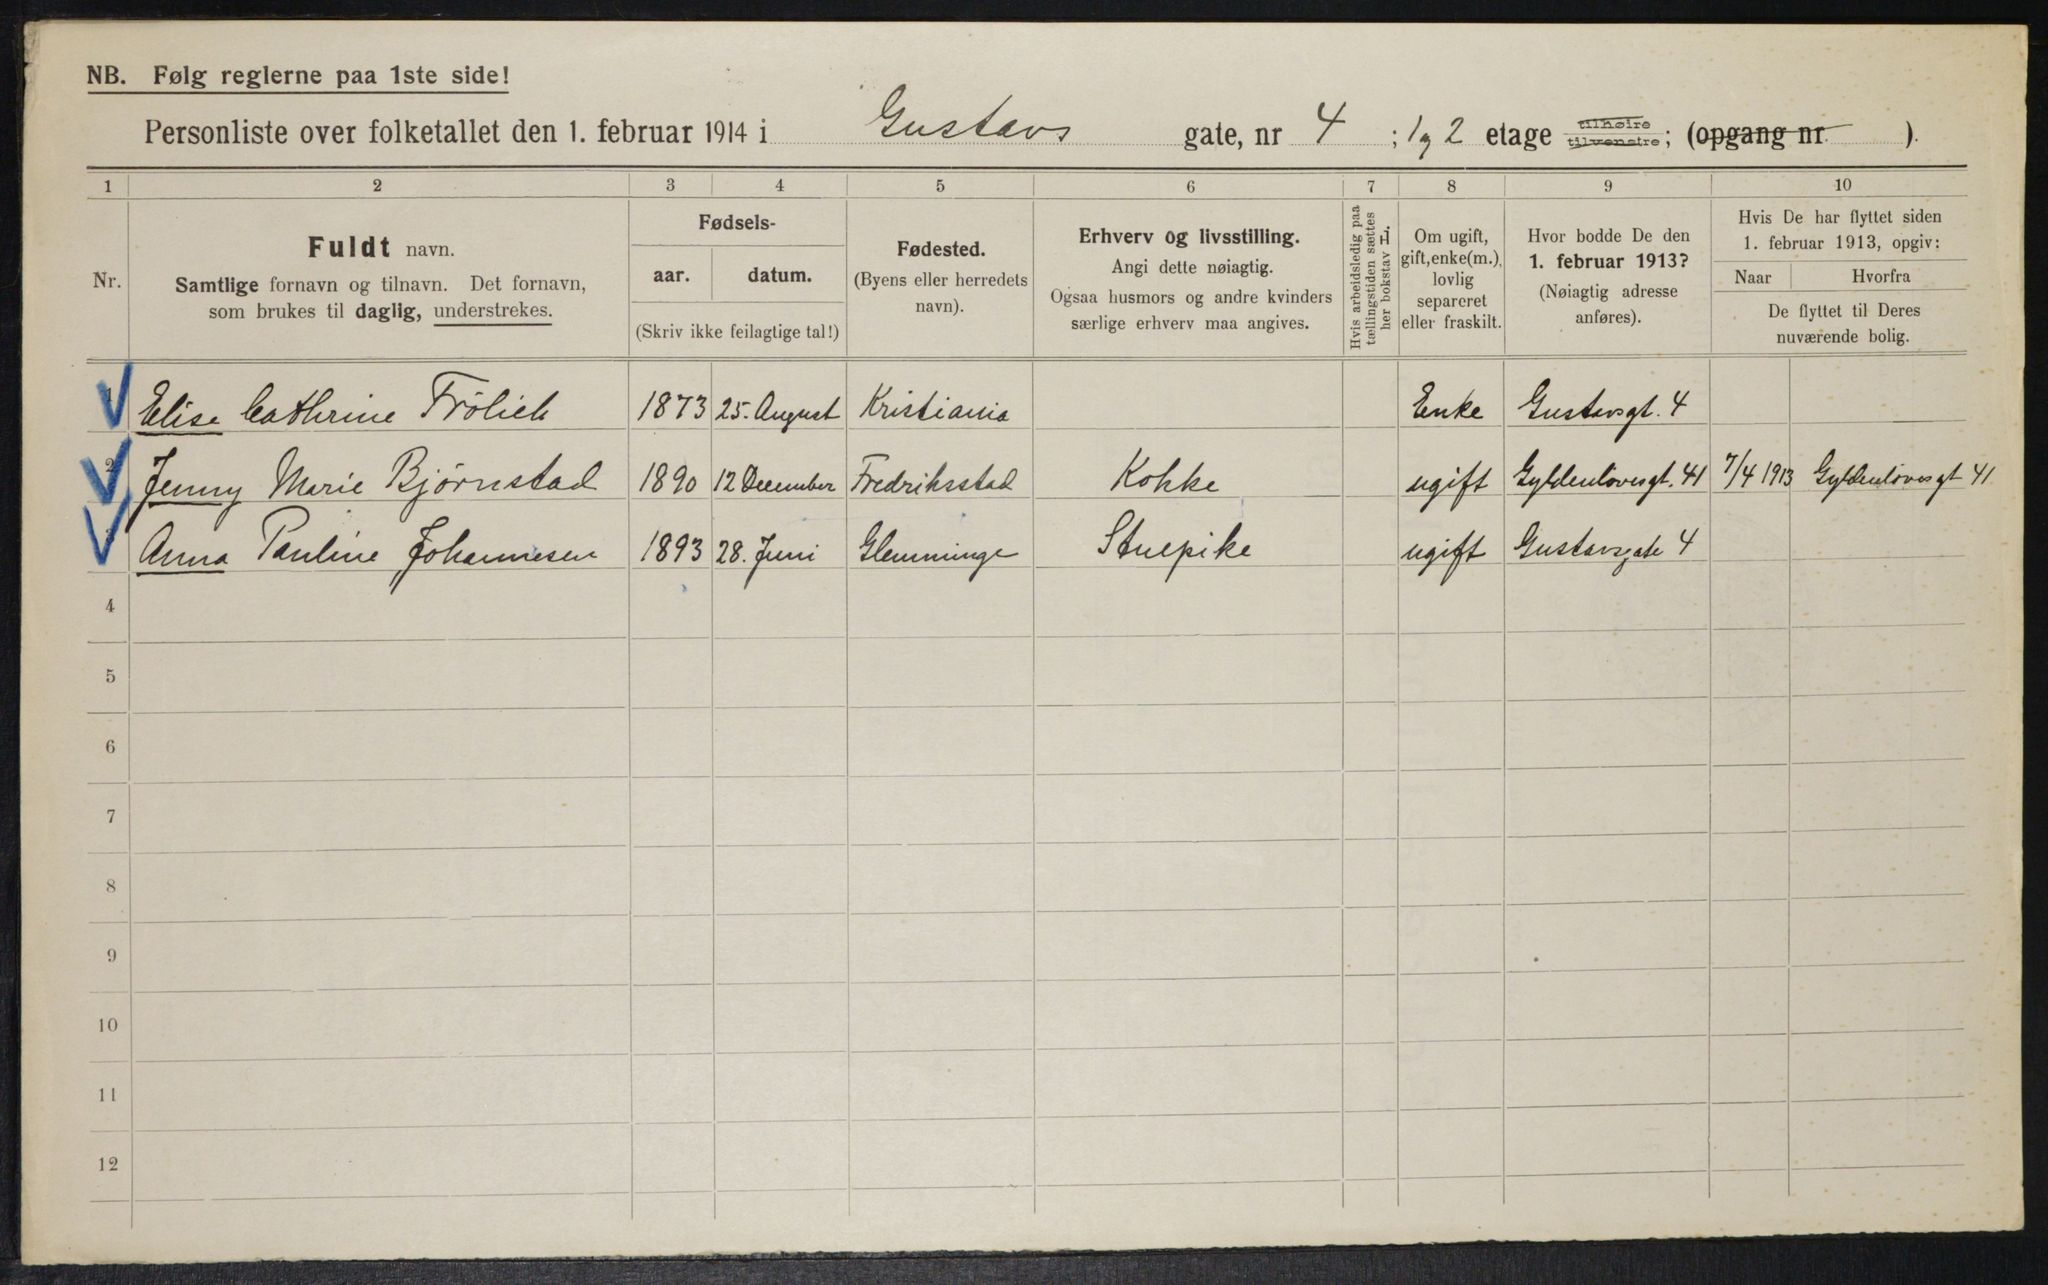 NB. Følg reglerne paa 1ste side!
Personliste over folketallet den 1. februar 1914 i Gustavs gate, nr 4 ; 1 og 2 etage tilhøire tilvenstre ; (opgang nr. ).
1 2 3 4 5 6 7 8 9 10
Nr.
Fuldt navn.
Samtlige fornavn og tilnavn. Det fornavn,
som brukes til daglig, understrekes.
Fødsels-
aar. datum.
(Skriv ikke feilagtige tal!)
Fødested.
(Byens eller herredets
navn).
Erhverv og livsstilling.
Angi dette nøiagtig.
Ogsaa husmors og andre kvinders
særlige erhverv maa angives.
Hvis arbeidsledig paa
tællingstiden sættes
her bokstav H.
Om ugift,
gift, enke(m.),
lovlig
separeret
eller fraskilt.
Hvor bodde De den
1. februar 1913?
(Nøiagtig adresse
anføres).
Hvis De har flyttet siden
1. februar 1913, opgiv:
Naar Hvorfra
De flyttet til Deres
nuværende bolig.
1 Elise Cathrine Frölich 1873 25. August Kristiania Enke Gustavsgt. 4
2 Jenny Marie Bjørnstad 1890 12 December Fredriksstad Kokke ugift Gyldenløvesgt. 41 7/4 1913 Gyldenløvesgt 41
3 Anna Pauline Johannesen 1893 28. Juni Glemminge Stuepike ugift Gustavsgate 4
4
5
6
7
8
9
10
11
12